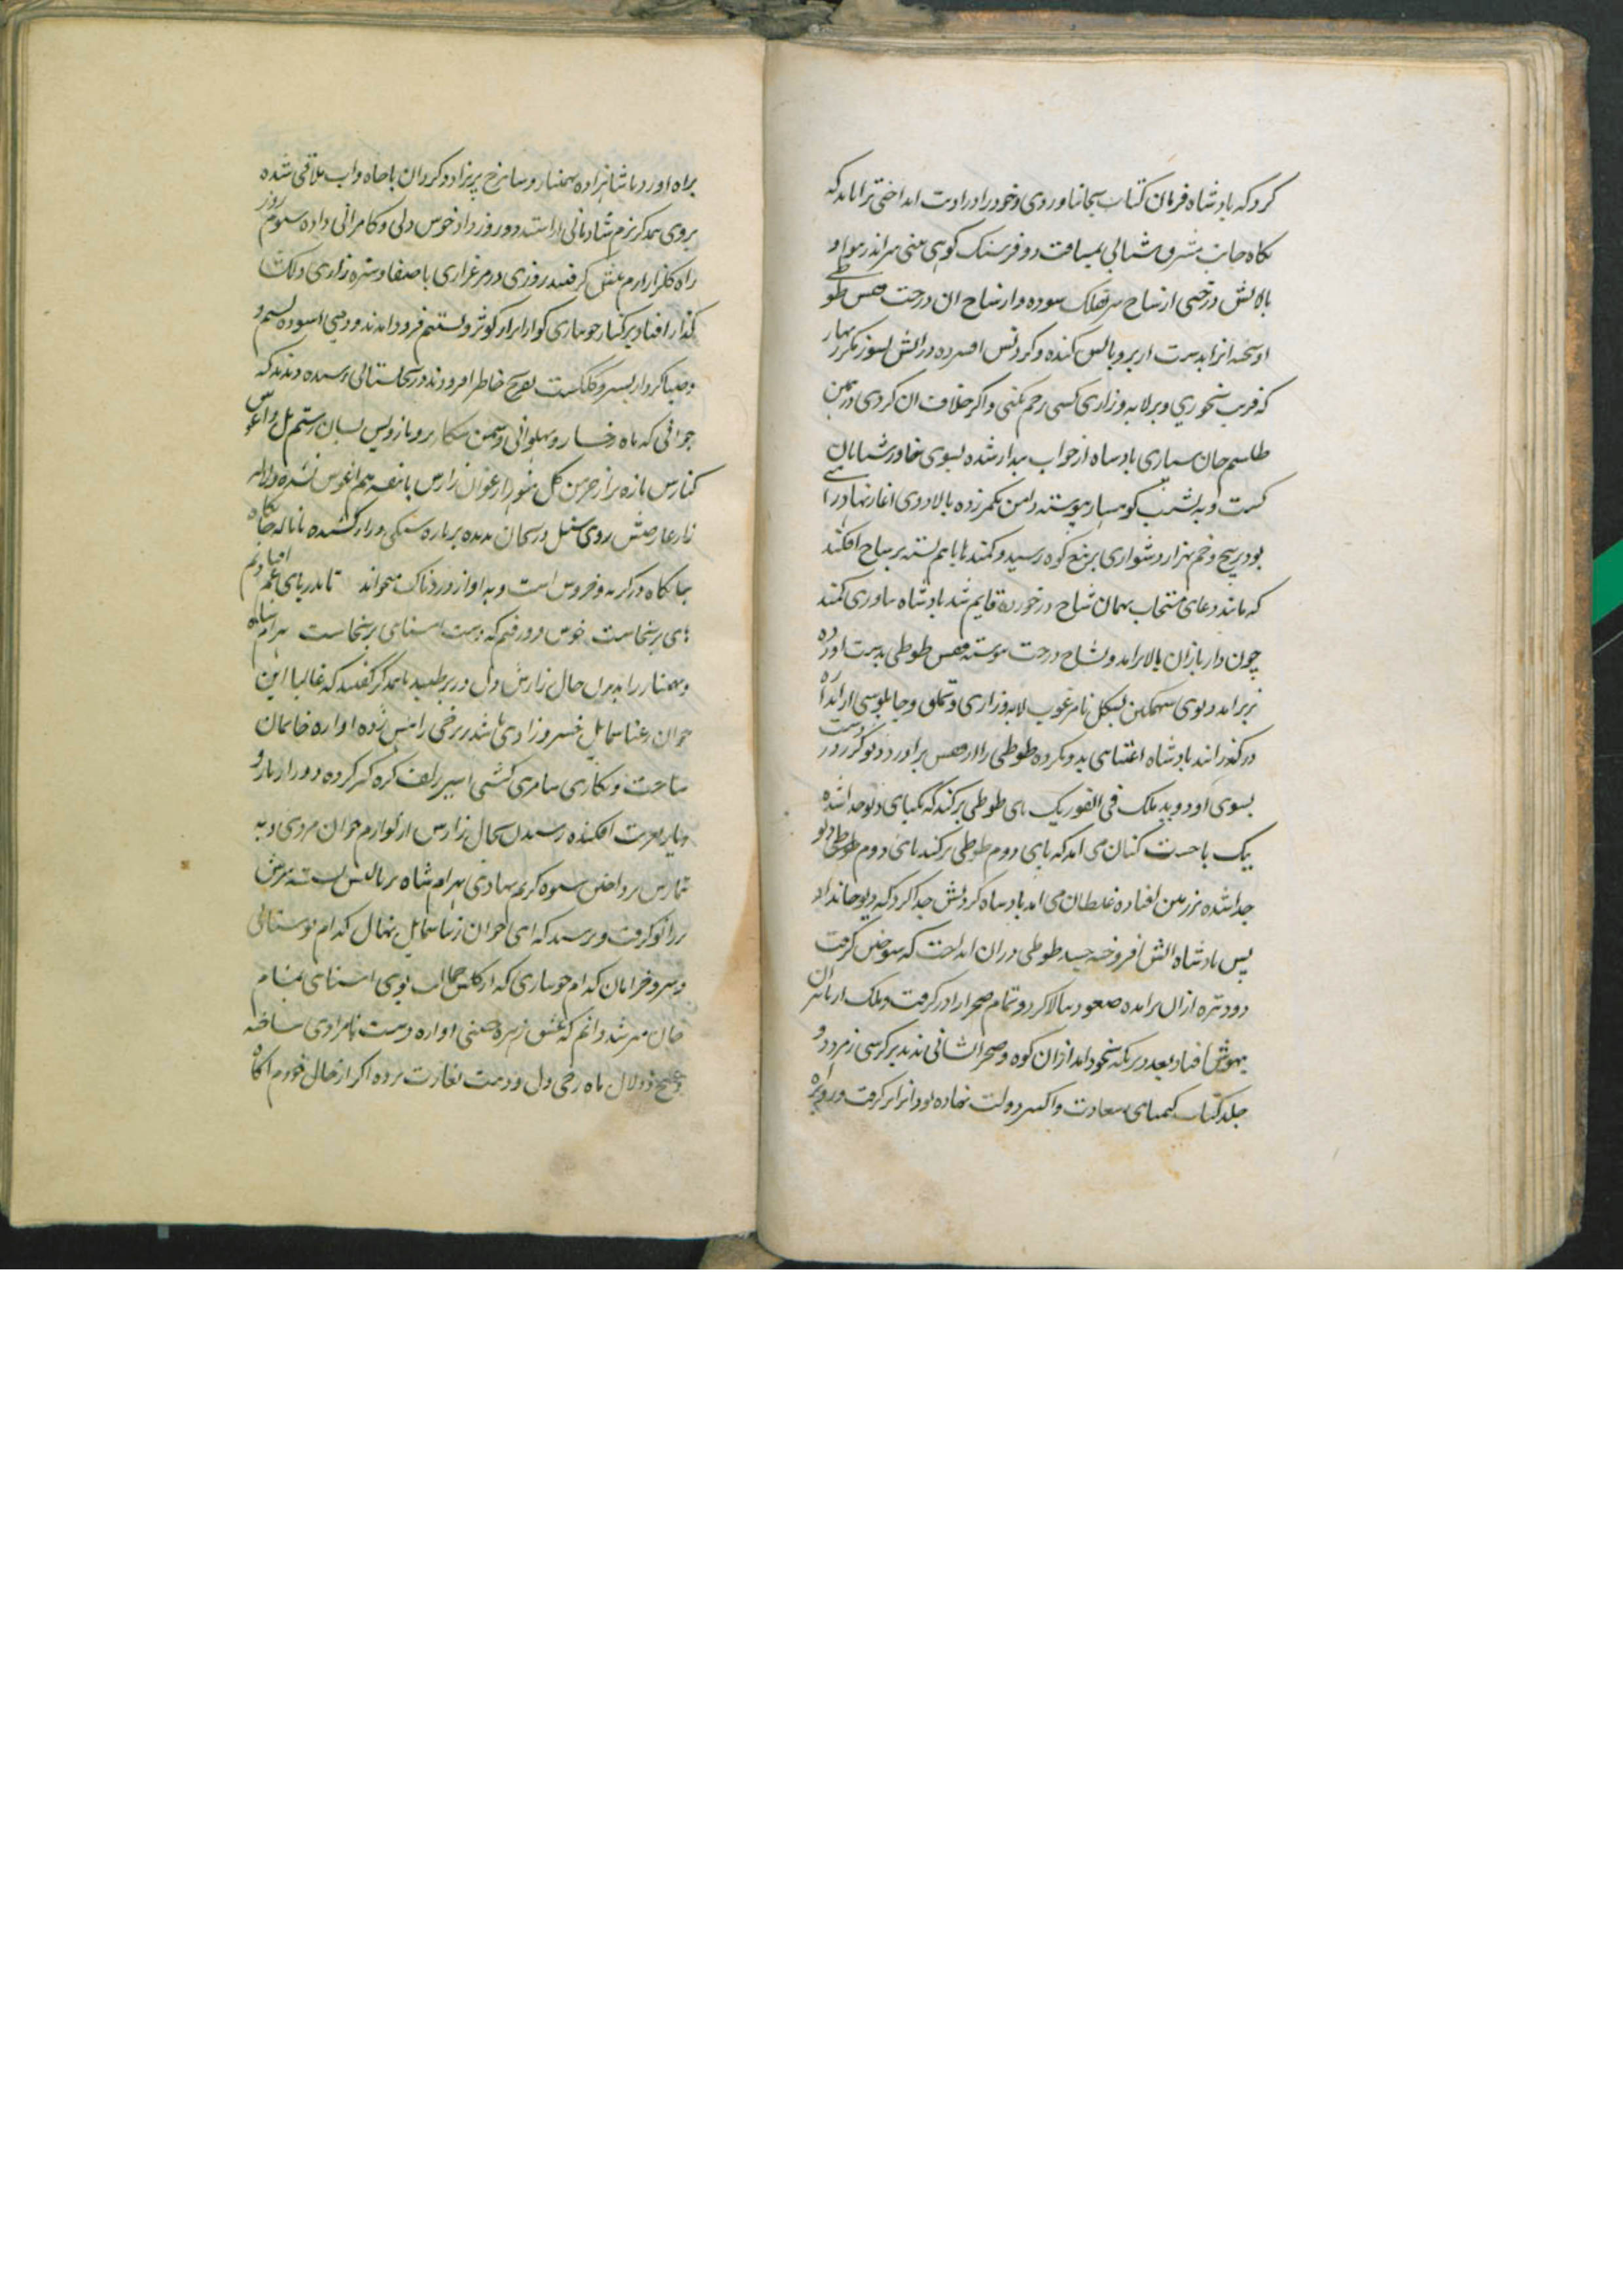 کرد که بادشاه فرمان کتاب بجا نیاوردی و خود را در اندا ختی ترا باید که
نگاه جانب مشرق شتابی بمسافت دو فرسنگ کوهی بینی سر اندر هوا و
بالاش درختی از شاخ سر بفلک سوده و از شاخ ان درخت قفس طوطی
او را بدست ار پر و بالش کنده و کردنش در اتش بسوز مکر زنهار
که فریب نخوری و بر لابه و زاری کسی رحم نکنی و اکر خلاف ان کردی درین
طلسم جان سپاری بادشاه از خواب بیدار شده بسوی خاور شتابان
کشت و به کوهسار پیوسته دامن بکمر زده بالا روی اغاز نهاد راهی
بود پیچ و خم بهزار دشواری بر تیغ کوه رسید و کمند ها باهم بسته بر شاخ افکند
که مانند دعای مستجاب بهمان شاخ درخورده قایم شد بادشاه بیاوری کمند
چون دار بازان بالا برامد و بشاخ درخت پیوسته قفس طوطی بدست اورده
زیر امد دیوی سهمکین بشکل نامرغوب لابه و زاری و تملق و چاپلوسی از اندازه
درکذرانید بادشاه اعتنای بدو نکرده طوطی را از قفس براورد دیو کرز در دست
بسوی او دوید ملک فی الفور یک پای طوطی برکند که یکپای دیو جدا شده
بیک پا جست کنان می امد که پای دوم طوطی برکند پای دوم دیو
جدا شده بر زمین افتاده غلطان می امد بادشاه کردنش جدا کرد که دیو جانداد
پس بادشاه اتش افروخته جسد طوطی دران انداخت که سوختن کرفت
دود تیره ازان برامده صعود ببالا کرد و تمام صحرا را در کرفت و ملک از تاثیر ان
بیهوش افتاد بعد دیر که بخود امد ازان کوه و صحرا نشانی ندید بر کرسی زمرد دو
جلد کتاب کیمیای سعادت و اکسیر دولت نهاده بود انرا بر کرفت و رو براه
براه اورد با شاهزاده بهمنیار و سایر رخ پریزاد و کردان باجاه و اب ملاقی شده
بروی همدکر بزم شادمانی اراست دو روز داد خوش دلی و کامرانی داده سیوم روز
راه کلزار ارم پیش کرفتند روزی در مرغزاری با صفا و سبزه زاری دلکش
کذار افتاد بر کنار جویباری کوارا از کوثر و تسنیم فرود امدند و دمی اسوده نسیم و
صبا کردار بسیر و کلکشت بتفریح خاطر افزودند رسیده دیدند که
جوانی که ماه رخسار و پهلوانی وسمن بر و بازویش بسان رستم یل و
کنارش تازه تر از خرمن کل ارغوان زارش با بنفشه هم اغوش نشده و لاله
زار عارضش روی سنبل و ریحان ندیده بر پاره سنکی دراز کشیده با ناله جانکاه
در کریه و خروش است و به اواز دردناک میخواند تا بدریای غم افتادیم
های برنخاست خوش فرو رفتیم که دست اشنای برنخاست بهرام شاه
و بهمنیار را بدین حال زارش دل در بر طپید باهمدکر کفتند که غالبا این
جوان رعنا شمایل خسرو زادی باشد بر رخی را منش زده اواره خانمان
ساخت و نکاری سامری کشی اسیر زلف کره کیر کرده دور از یار و
دیار بغربت افکنده رسیدن بحال زارش از لوازم جوان مردی و به
تیمارش پرداختن شیوه کریم نهادی بهرام شاه بر بالینش نشسته سرش
بزانو کرفت و پرسید که ای جوان زیبا شمایل نهال کدام بوستانی
و سرو خرامان کدام جویباری که از کلشن جمالت بوی اشنای بمشام
جان میرسد دانم که عشق زهره جبینی اواره دشت نامرادی ساخته
و غنج و دلال ماه رخی دل و دینت بغارت برده اکر از حال خودم اکاه